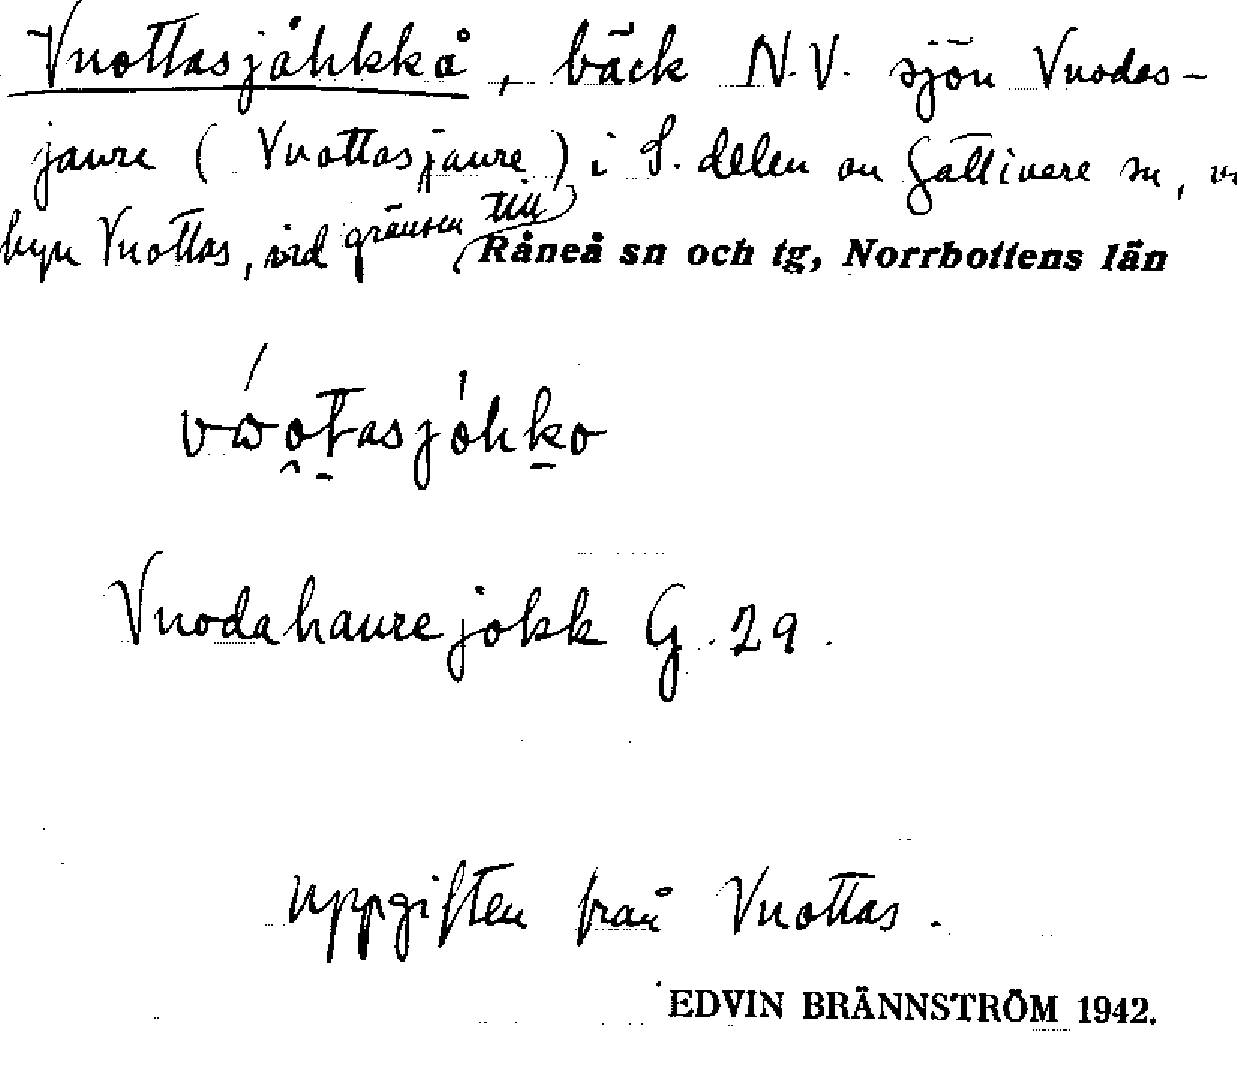 Vuottasjåhkkå, bäck N.V. sjön Vuodas-
jaure (Vuottasjaure) i S. delen av Gällivare sn,
byn Vuottas, vid gränsen till Råneå sn och tg, Norrbottens län
Vuodahaurejokk G. 29.
Uppgiften från Vuottas.
EDVIN BRÄNNSTRÖM 1942.